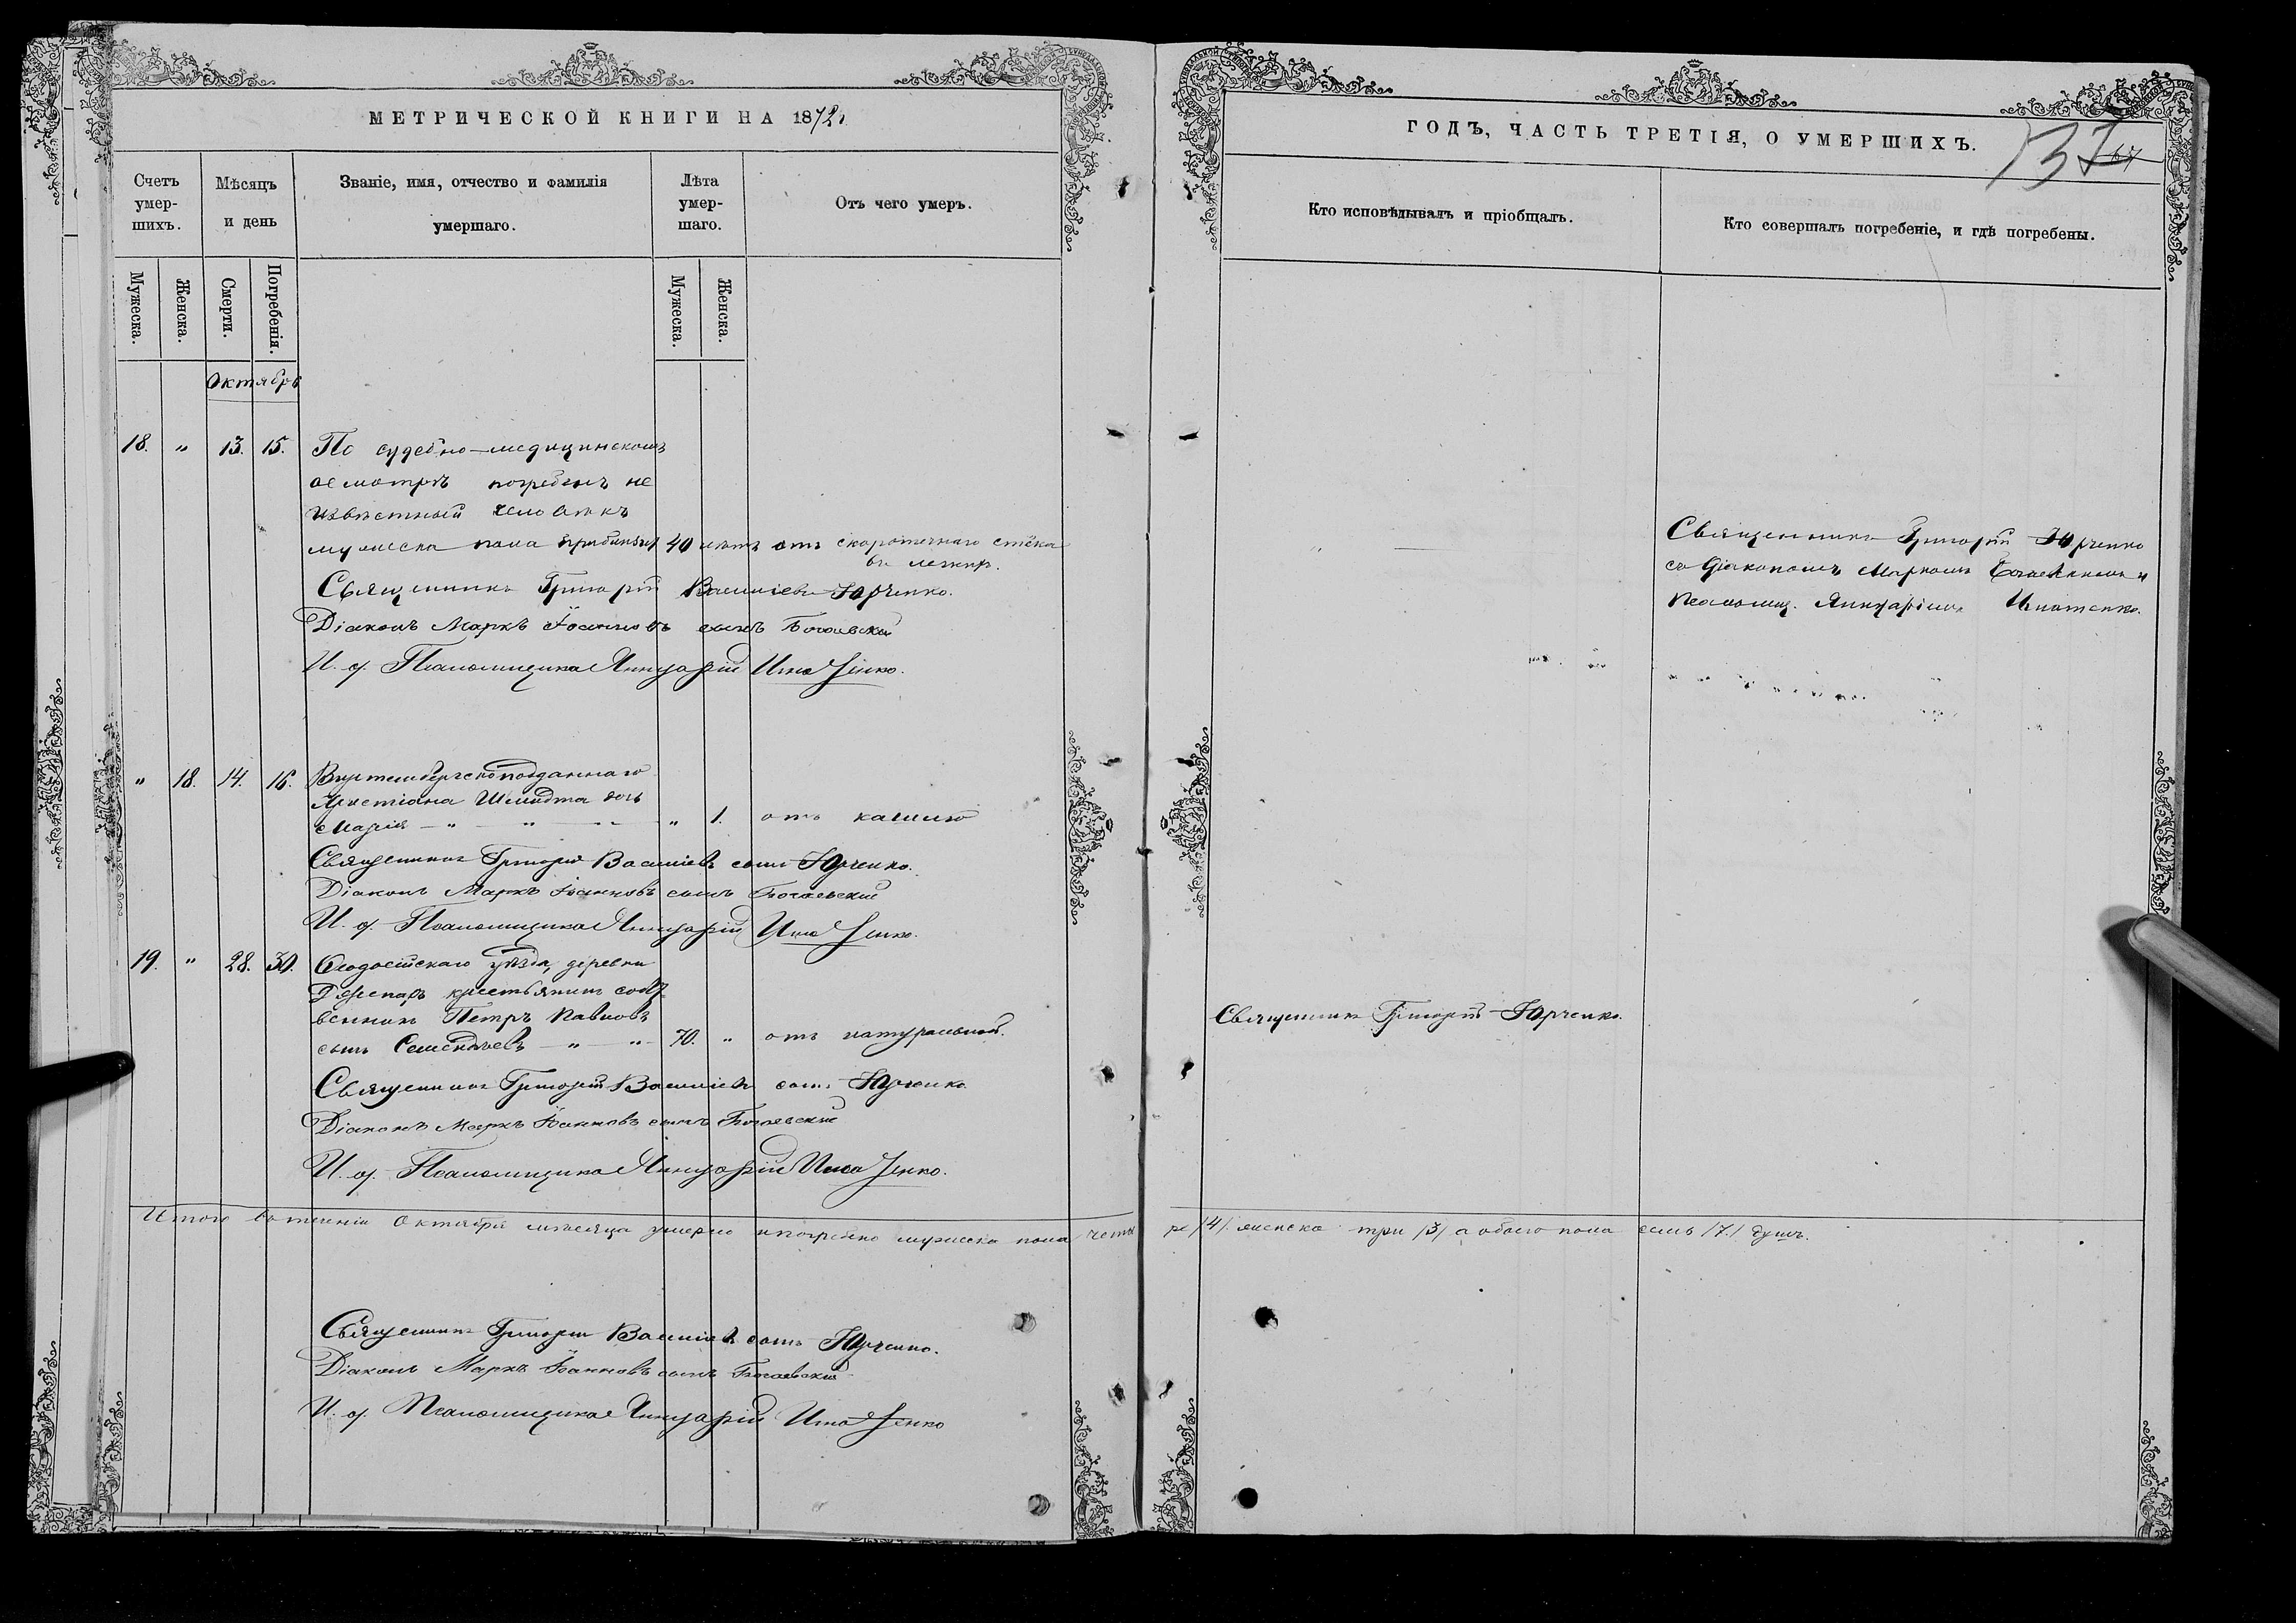 МЕТРИЧЕСКОЙ КНИГИ НА 1872
Счетъ умер-шихъ.
Мѣсяцъ и день
Званіе, имя, отчество и фамилія умершаго.
Лѣта умер-шаго.
Отъ чего умеръ.
Мужеска.
Женска.
Смерти.
Погребенія.
Мужеска.
Женска.
Октябрь
18. " 13. 15. По судебно-медицинскомъ
осмотрѣ погребенъ не
извѣстный человѣкъ
мужеска пола 40 лѣтъ отъ скоротечнаго отёка
въ легкія.
Священникъ Григорій Васильевъ Юрченко.
Діаконъ Маркъ Іоанновъ сынъ Богаевскій
И. д. Псаломщика Яннуарій Игнатенко.
" 18. 14. 16. Виртембергскоподданнаго
Христіана Шмидта дочь
Марія — " — " — " 1. отъ кашлю
Священникъ Григорій Васильевъ сынъ Юрченко.
Діаконъ Маркъ Іоанновъ сынъ Богаевскій
И. д. Псаломщика Яннуарій Игнатенко.
19. " 28. 30. Ѳеодосійскаго уѣзда, деревни
крестьянинъ собст
венникъ Петръ Павловъ
сынъ — " — " 70. " отъ натуральной.
Священникъ Григорій Васильевъ сынъ Юрченко
Діаконъ Маркъ Іоанновъ сынъ Богаевскій
И. д. Псаломщика Яннуарій Игнатенко.
Итого въ теченіи Октября мѣсяца умерло и погребено мужеска пола четы
Священникъ Григорій Васильевъ сынъ Юрченко.
Діаконъ Маркъ Іоанновъ сынъ Богаевскій
И. д. Псаломщика Яннуарій Игнатенко
ГОДЪ, ЧАСТЬ ТРЕТІЯ, О УМЕРШИХЪ.
137
67
Кто исповѣдывалъ и пріобщалъ.
Кто совершалъ погребеніе, и гдѣ погребены.
Священникъ Григорій Юрченко
съ Діакономъ Маркомъ Богаевскимъ и
Псаломщ. Яннуаріемъ Игнатенко.
Священникъ Григорій Юрченко.
ре /4/ женска три /3/ а обоего пола семь /7./ душъ.